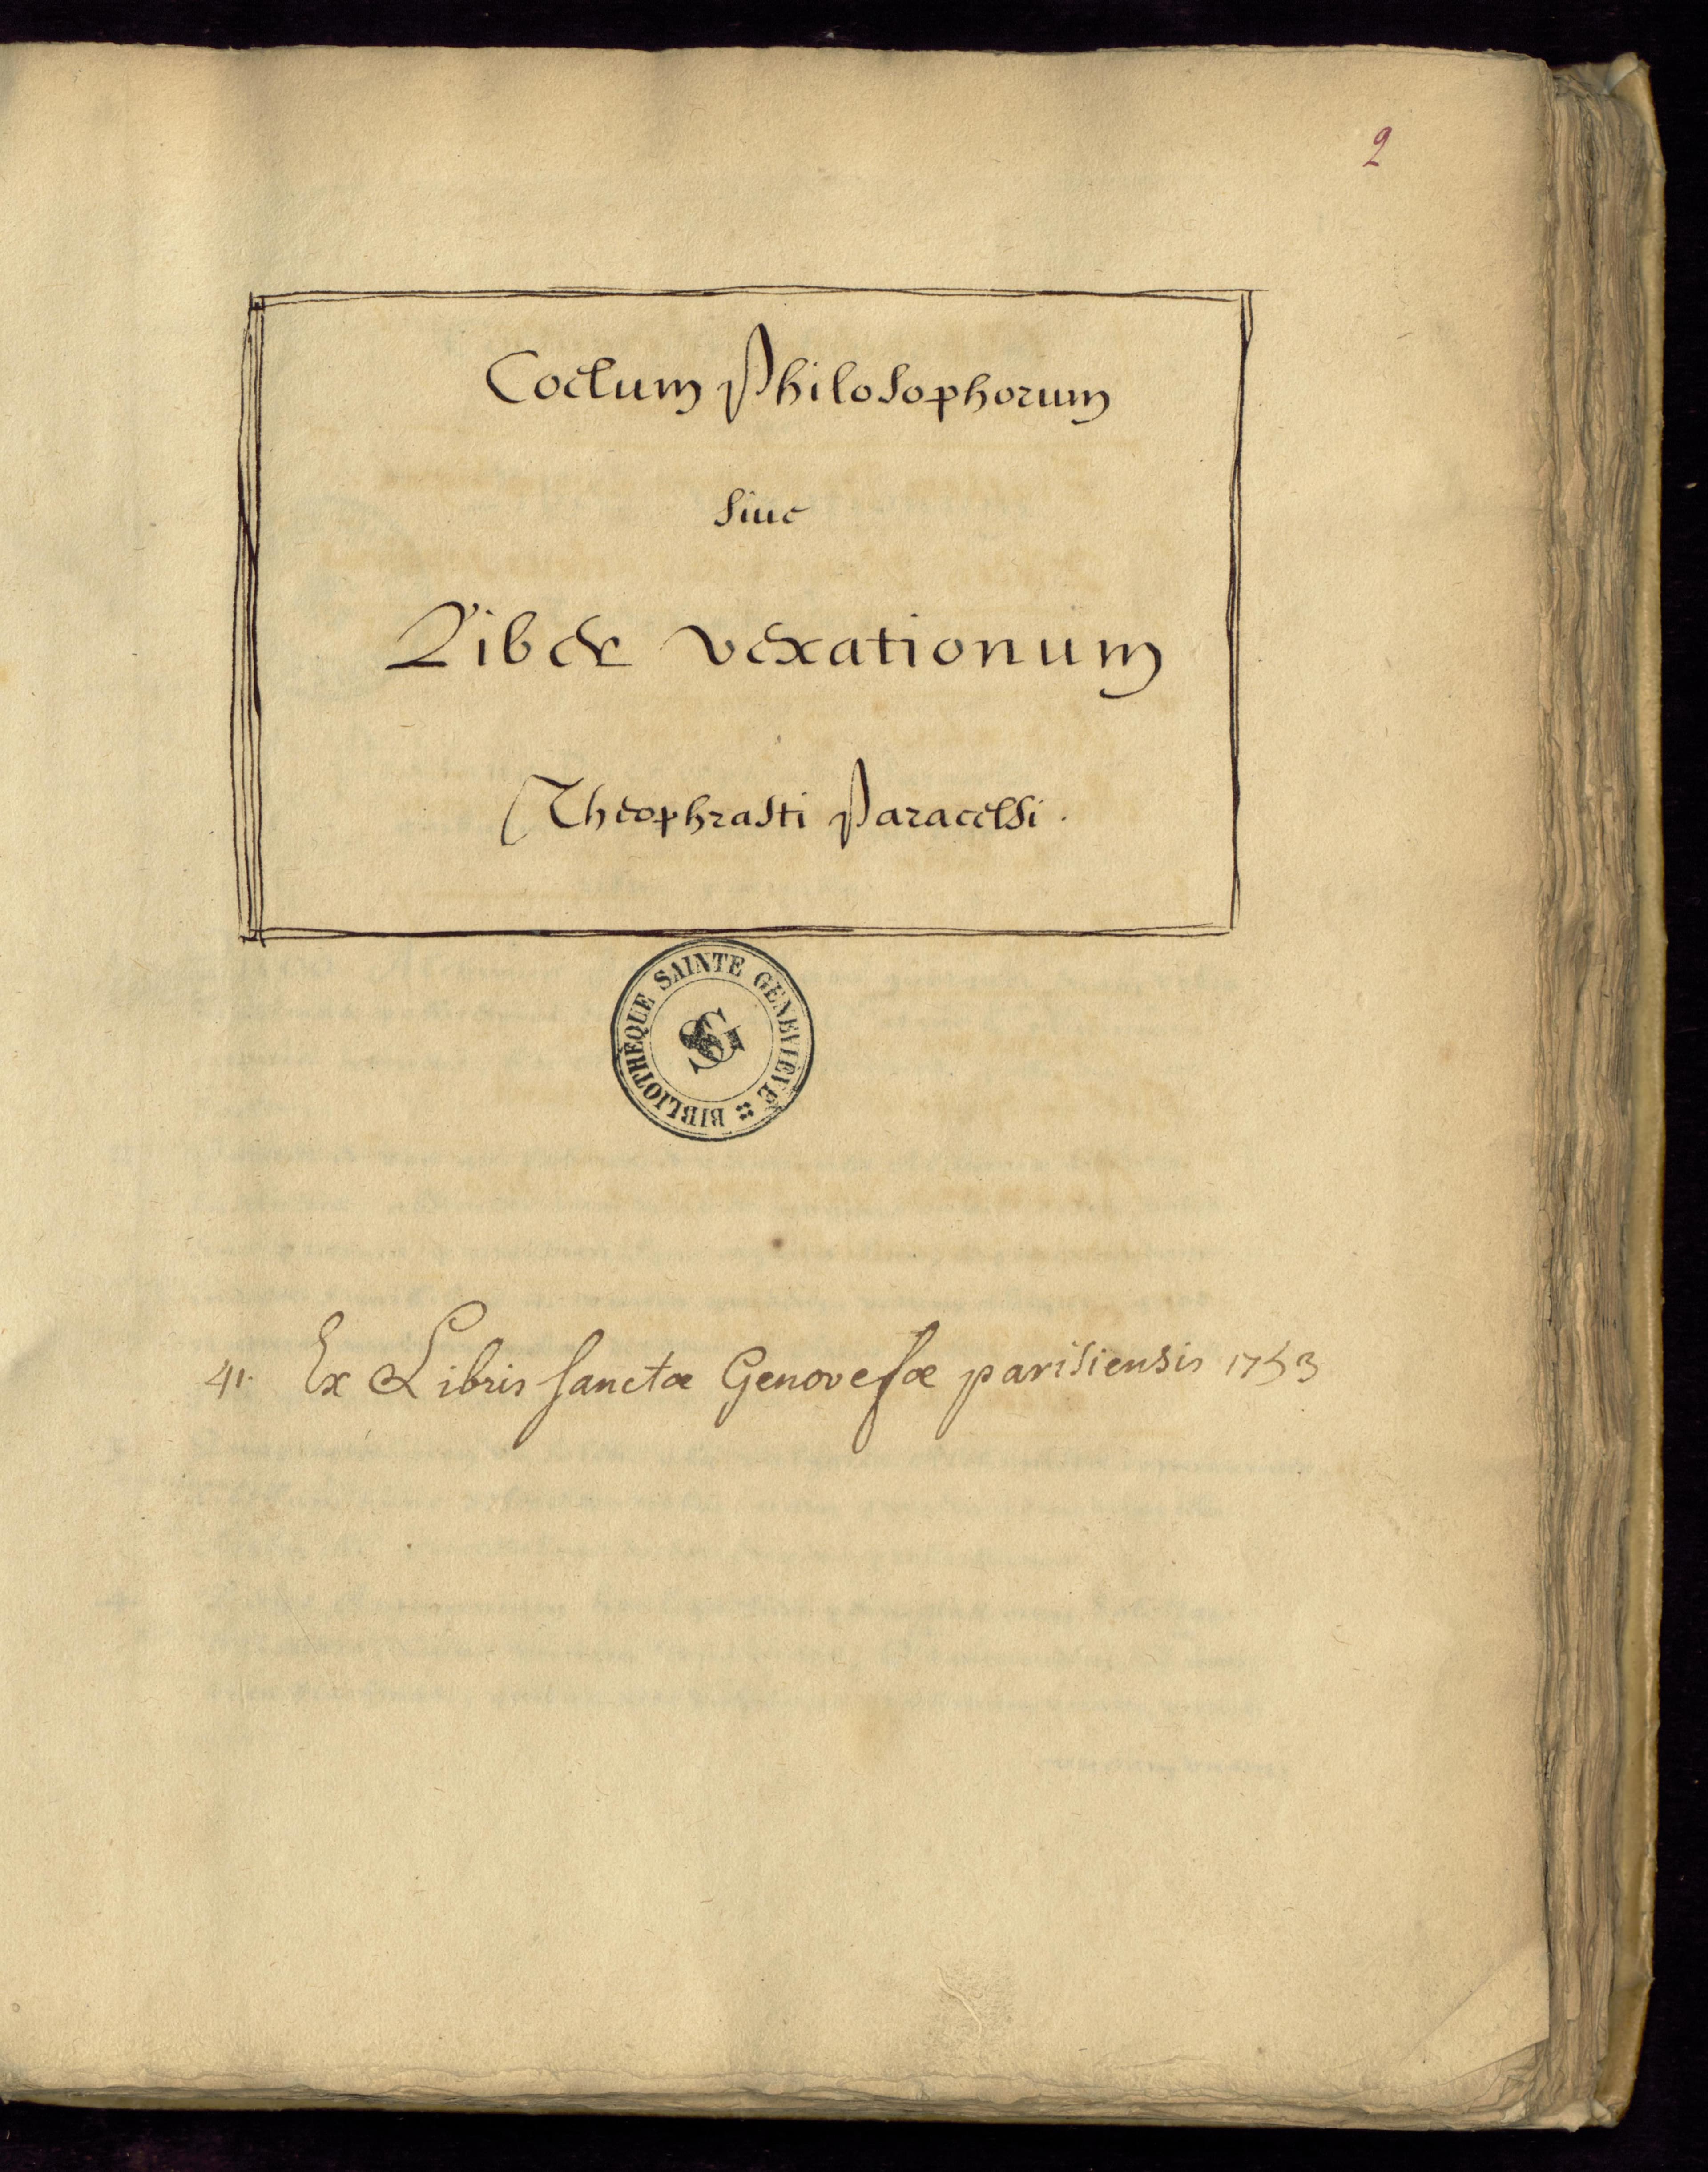 2
Coelum Philosophorum
siue
Liber vexationum
Theophrasti Paracelsi.
BIBLIOTHÈQUE SAINTE GENEVIEVE
SG
41. Ex Libris sanctæ Genovefæ parisiensis 1753